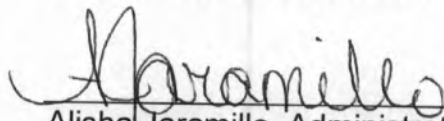 AJaramillo
Alisha Jaramillo, Administ